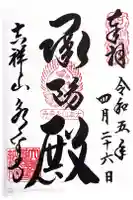 奉拝
令和五年
四月二十六日
承陽殿
吉祥山永平寺